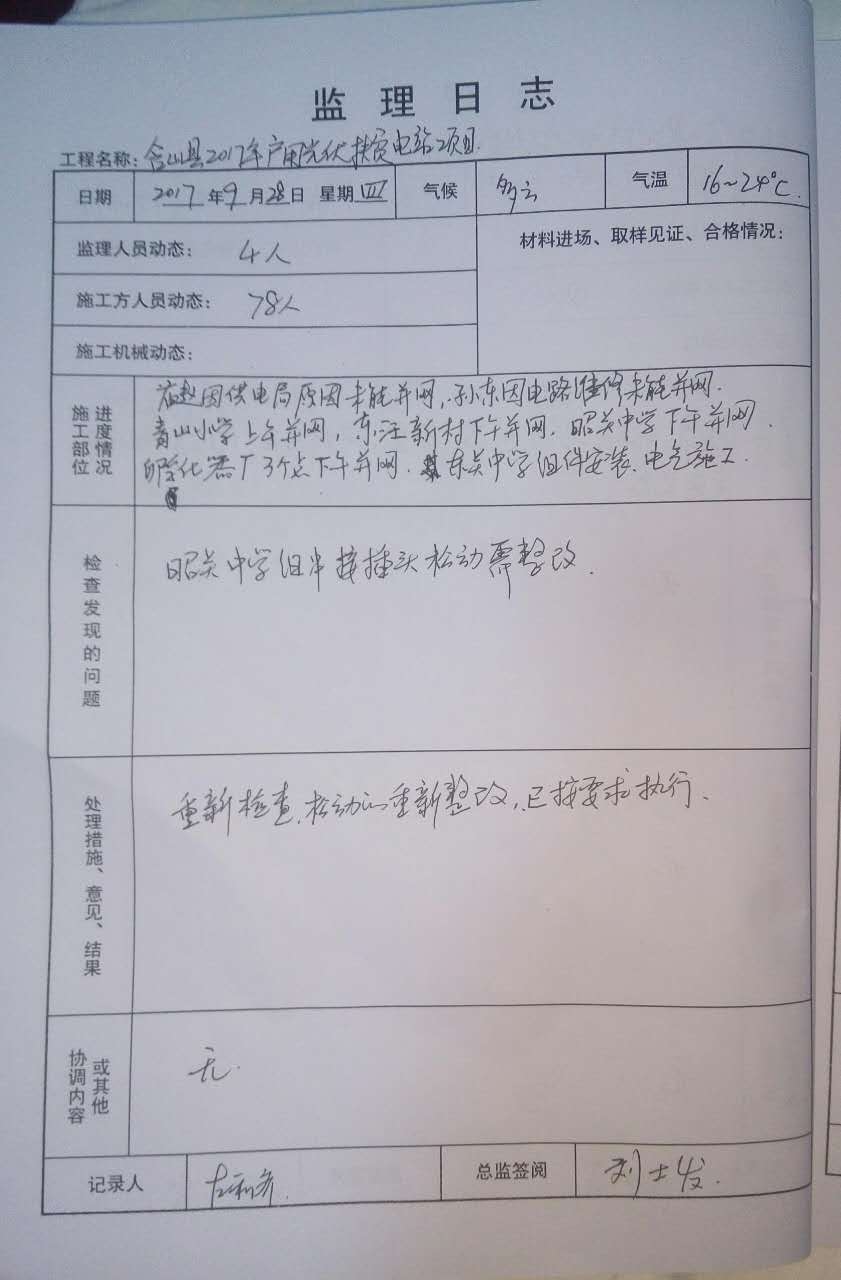 监理日志
工程名称：含山县2017年户用光伏扶贫电站项目
日期 2017年9月28日 星期 气候 多云 气温 16~24℃.
监理人员动态： 4人 材料进场、取样见证、合格情况：
施工方人员动态： 78人
施工机械动态：
施工部位进度情况
因供电局原因未能并网，孙东因电路维修未能并网.
青山小学上午并网，东汪新村下午并网. 昭关中学下午并网.
孵化器厂3个点下午并网. 东关中学组件安装. 电气施工.
检查发现的问题
昭关中学组串接插头松动需整改.
处理措施、意见、结果
重新检查,松动的重新整改,已按要求执行.
协调内容或其他
无.
记录人 总监签阅 刘士发.